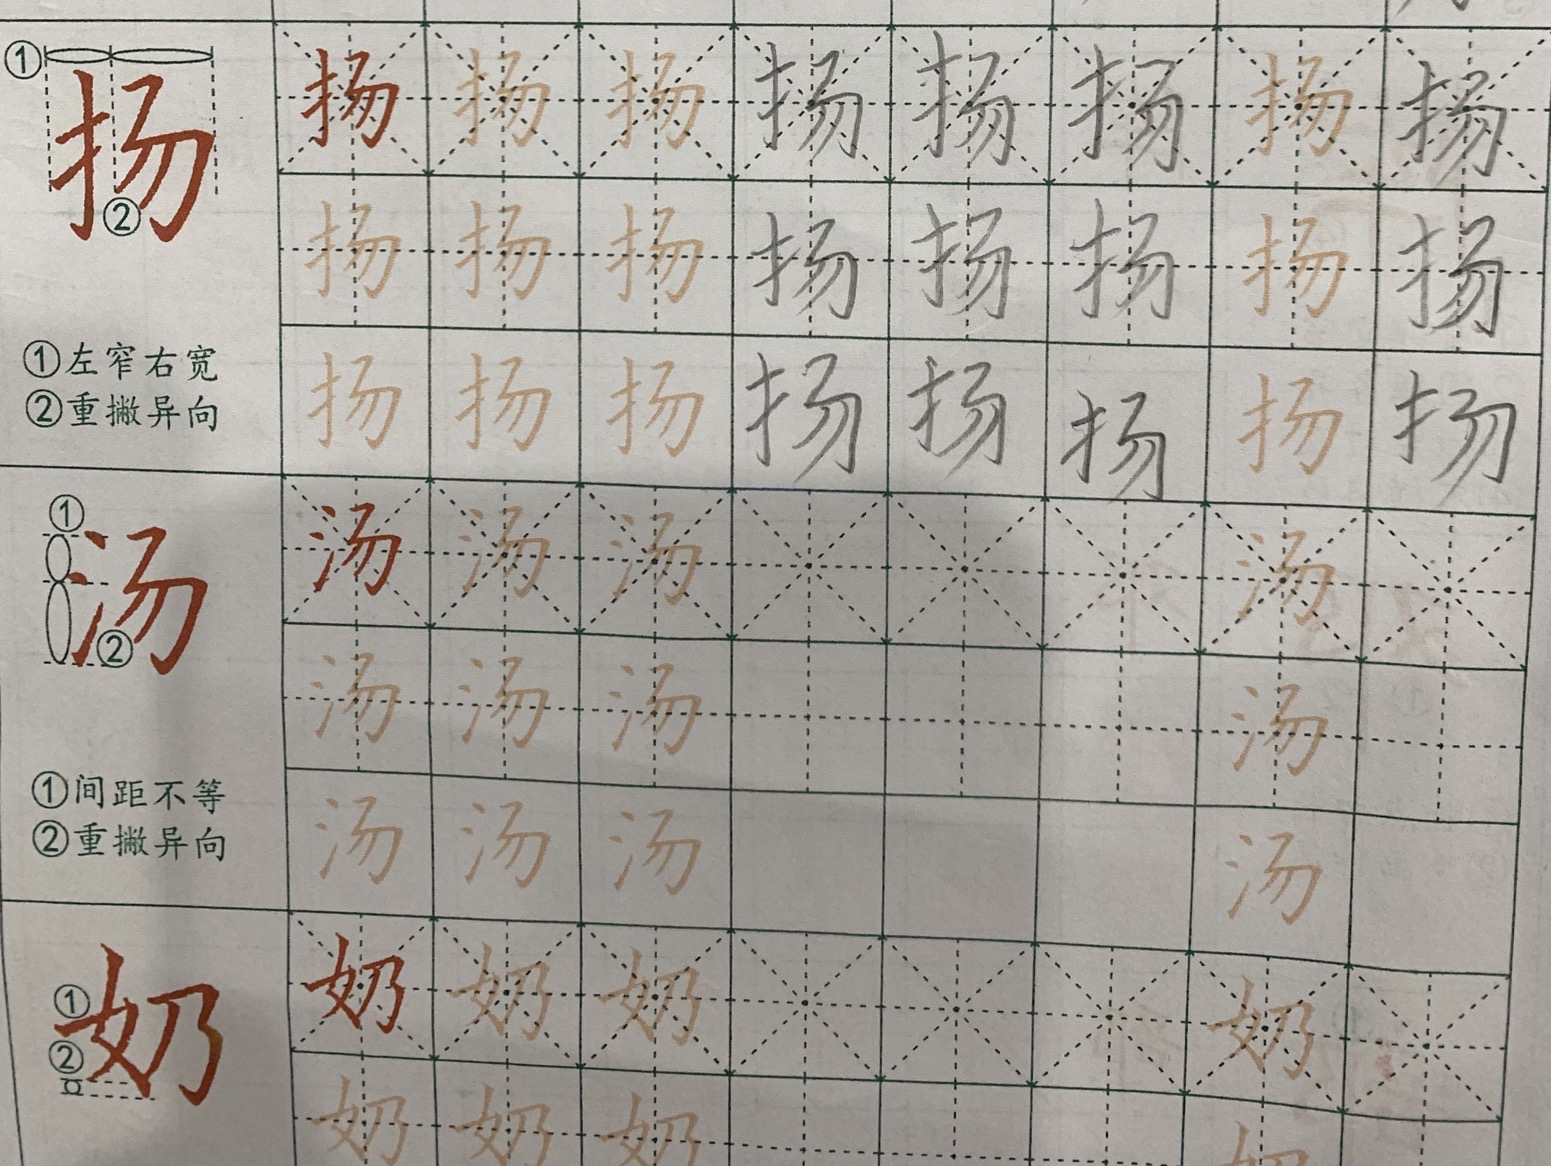 ① 扬 ② 扬 扬 扬 扬 扬 扬 扬 扬
扬 扬 扬 扬 扬 扬 扬 扬
①左窄右宽
②重撇异向
扬 扬 扬 扬 扬 扬 扬 扬
① 汤 ② 汤 汤 汤 汤
汤 汤 汤 汤
①间距不等
②重撇异向
汤 汤 汤 汤
① 奶 ② 奶 奶 奶 奶
奶 奶 奶